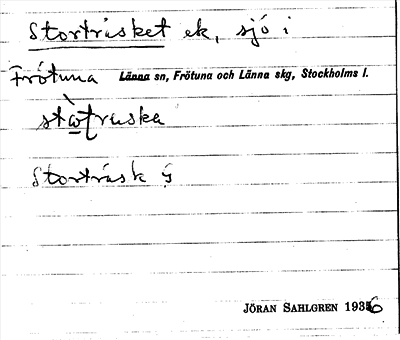 Storträsket ek, sjö i
Frötuna Länna sn, Frötuna och Länna skg, Stockholms l.
Storträsk
JÖRAN SAHLGREN 1936